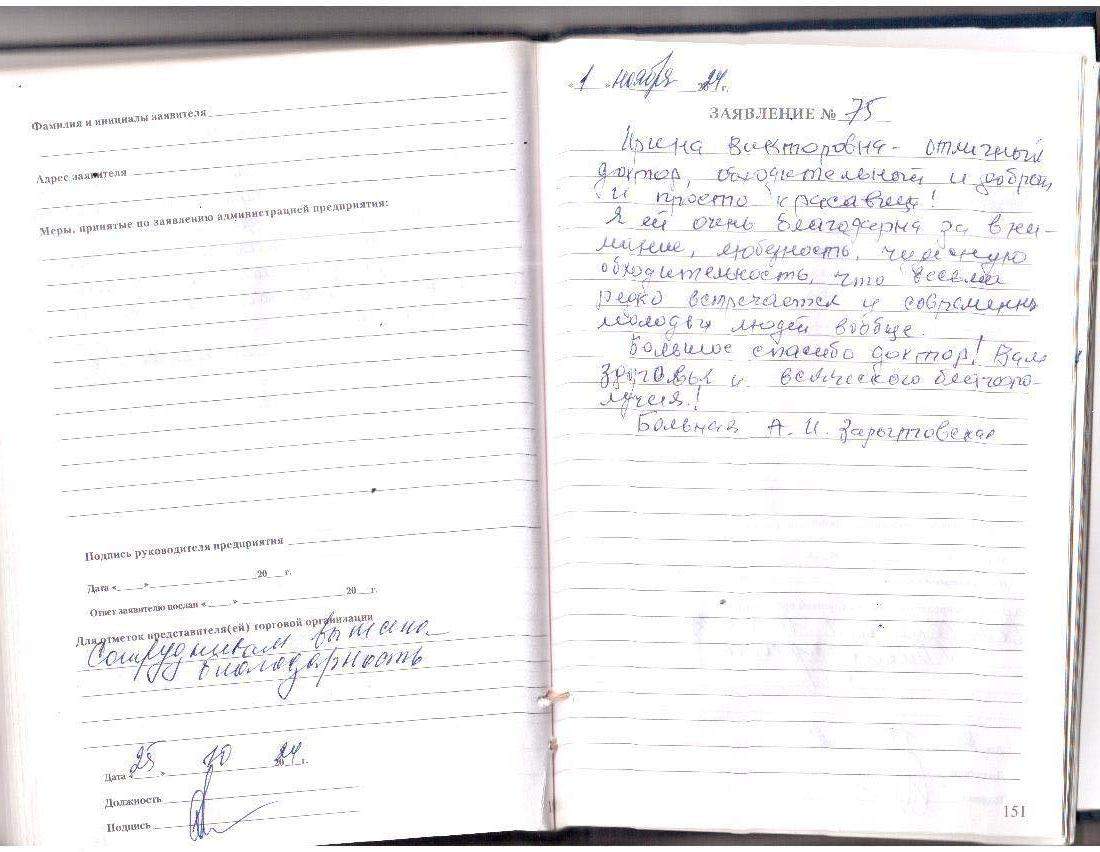 Фамилия и инициалы заявителя
Адрес заявителя
Меры, принятые по заявлению администрацией предприятия:
Подпись руководителя предприятия
Дата « » 20 г.
Ответ заявителю послан « » 20 г.
Для отметок представителя(ей) торговой организации
Сотрудникам
благодарность
Дата « 25 » 10 2024 г.
Должность
Подпись
« 1 » ноября 2024 г.
ЗАЯВЛЕНИЕ № 75
Ирина Викторовна - отличный
доктор, обходительный и добрый
и просто красавец!
Я ей очень благодарна за вни-
мание, любезность, чудесную
обходительность, что весьма
редко встречается у современных
молодых людей вообще.
Большое спасибо доктор! Вам
здоровья и всяческого благопо-
лучия!
Больная А. И.
151